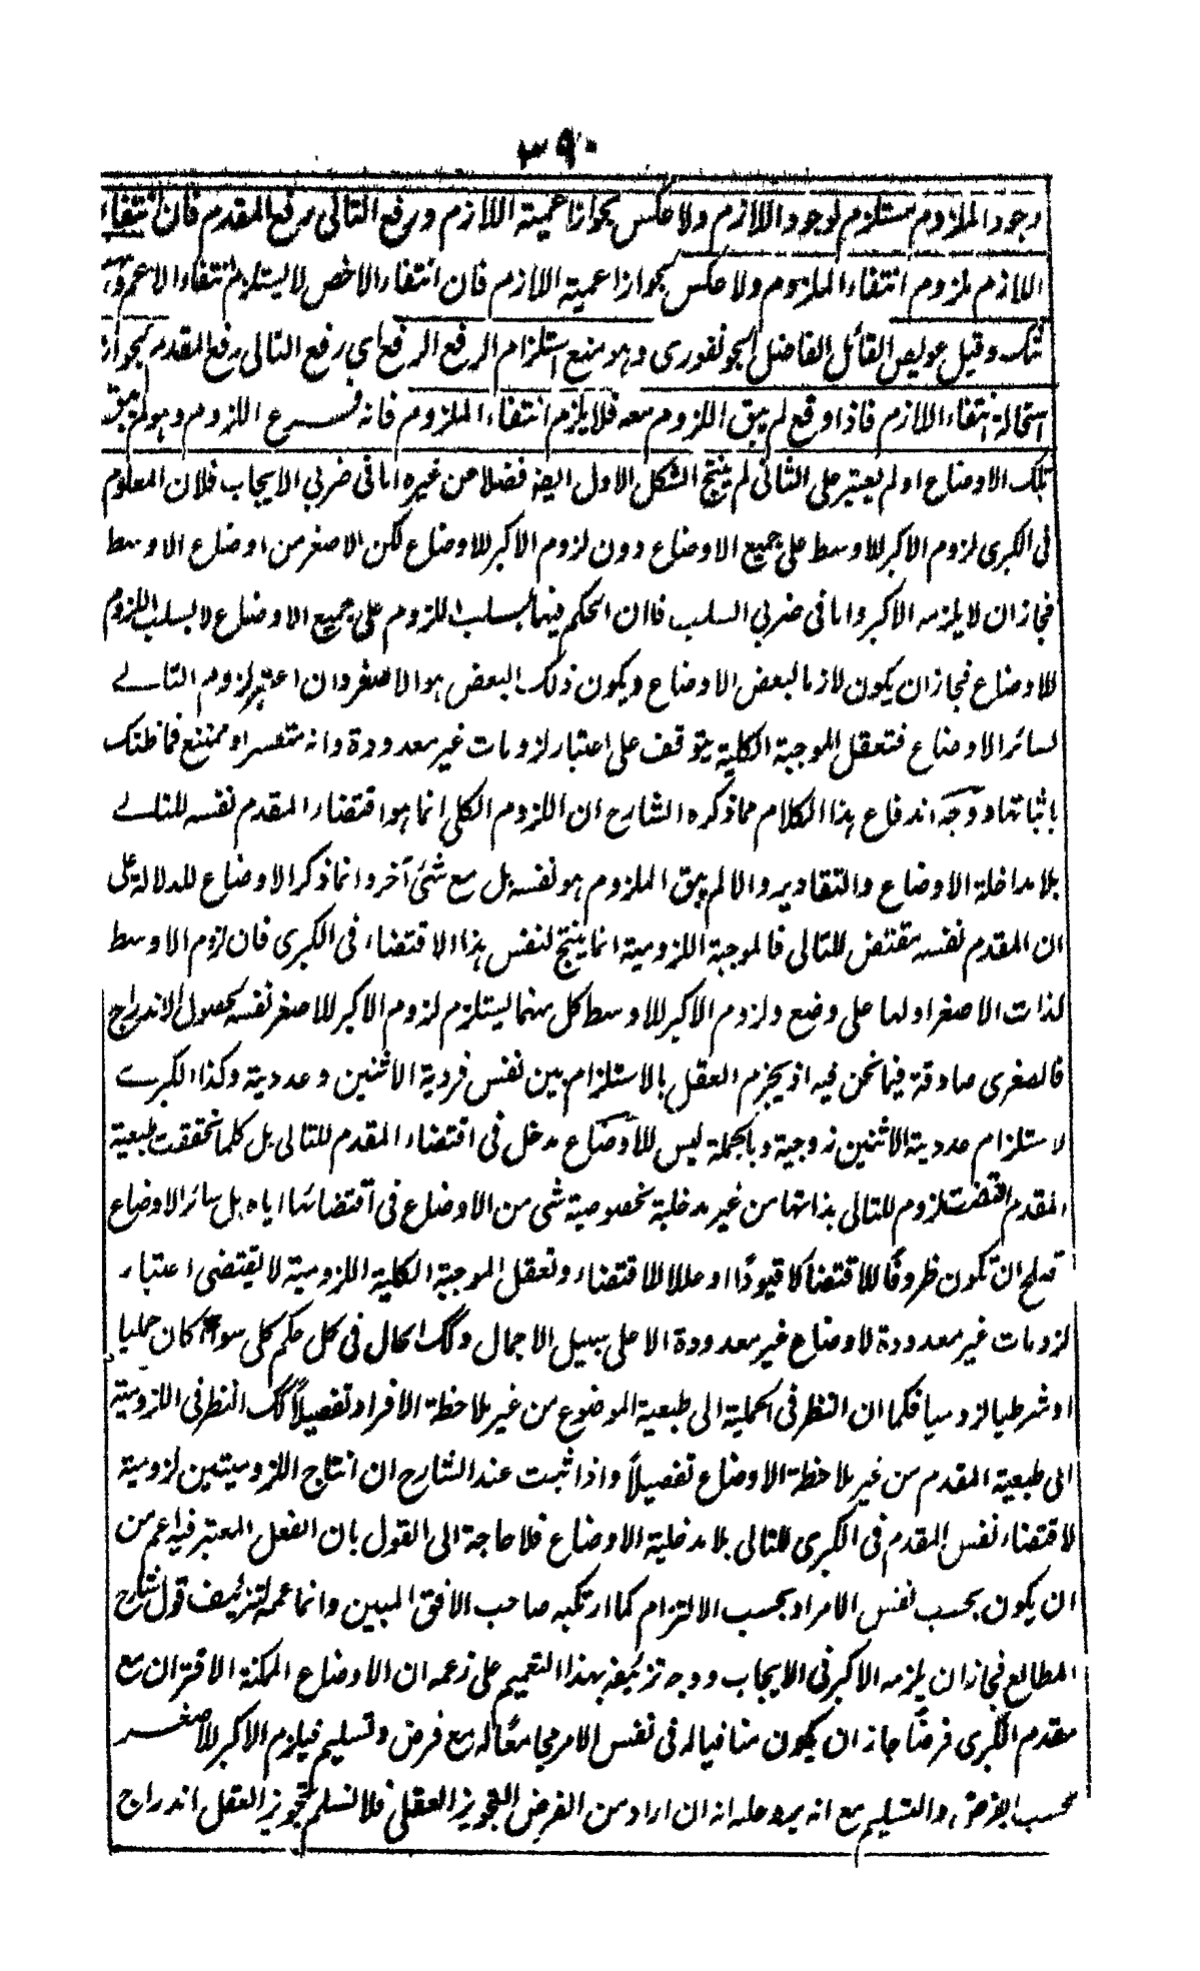 ٣٩٠
وجود الملزوم مستلزم لوجود اللازم ولا عكس بجواز اعمية اللازم ورفع التالى رفع المقدم فان انتفاء
اللازم ملزوم انتفاء الملزوم ولا عكس بجواز اعمية اللازم فان انتفاء الاخص لا يستلزم انتفاء الاعم
شك وقيل عويص القائل الفاضل الجونفورى وهو منع استلزام الرفع الرفع اى رفع التالى رفع المقدم بجواز
استحالة انتفاء اللازم فاذا وقع لم يبق اللزوم معه فلا يلزم انتفاء الملزوم فانه فرع اللزوم وهو لم يبق
تلك الاوضاع او لم يعتبر على الثانى لم ينتج الشكل الاول ايضه فضلا من غيره اما فى ضربي الايجاب فلان المعلوم
فى الكبرى لزوم الاكبر للاوسط على جميع الاوضاع دون لزوم الاكبر للاوضاع لكن الاصغر من اوضاع الاوسط
فجاز ان لا يلزمه الاكبر واما فى ضربي السلب فان الحكم فيهما بسلب اللزوم على جميع الاوضاع لا بسلب اللزوم
للاوضاع فجاز ان يكون لازما لبعض الاوضاع ويكون ذلك البعض هو الاصغر وان اعتبر لزوم التالے
لسائر الاوضاع فتعقل الموجبة الكلية يتوقف على اعتبار لزومات غير معدودة وانه متعسر او ممتنع فما ظنك
باثباتها ووجه اندفاع هذا الكلام مما ذكره الشارح ان اللزوم الكلى انما هو اقتضاء المقدم نفسه للتالے
بلا مداخلة الاوضاع والتقادير والا لم يبق الملزوم هو نفسه بل مع شئ آخر وانما ذكر الاوضاع للدلالة على
ان المقدم نفسه مقتض للتالى فالموجبة اللزومية انما ينتج لنفس هذا الاقتضاء فى الكبرى فان لزوم الاوسط
لذات الاصغر او لها على وضع ولزوم الاكبر للاوسط كل منهما يستلزم لزوم الاكبر للاصغر نفسه بحصول الاندراج
فالصغرى صادقة فيما نحن فيه اذ يجزم العقل بالاستلزام بين نفس فردية الاثنين وعددية وكذا الكبرے
لاستلزام عددية الاثنين زوجية وبالجملة ليس للاوضاع مدخل فى اقتضاء المقدم للتالى بل كلما تحققت طبعية
المقدم اقتضت لزوم للتالى بذاتها من غير مدخلية بخصوصية شى من الاوضاع فى اقتضائها اياه بل سائر الاوضاع
تصلح ان تكون ظروفًا للاقتضاء لا قيودًا او عللا للاقتضاء وتعقل الموجبة الكلية اللزومية لا يقتضى اعتبار
لزومات غير معدودة لاوضاع غير معدودة الا على سبيل الاجمال وكك الحال فى كل حكم كلى سواء كان حمليا
او شرطيا لزوميا فكما ان النظر فى الحملية الى طبعية الموضوع من غير ملاحظة الافراد تفصيلاً كك النظر فى اللزومية
الى طبعية المقدم من غير ملاحظة الاوضاع تفصيلاً واذا ثبت عند الشارح ان انتاج اللزوميتين لزومية
لاقتضاء نفس المقدم فى الكبرى للتالى بلا مدخلية الاوضاع فلا حاجة الى القول بان الفعل المعتبر فيه اعم من
ان يكون بحسب نفس الامر او بحسب الالتزام كما ارتكبه صاحب الافق المبين وانما عممه لتزئيف قول شارح
المطالع فجاز ان يلزمه الاكبر فى الايجاب ووجه تزئيفه بهذا التعميم على زعمه ان الاوضاع الممكنة الاقتران مع
مقدم الكبرى فرضًا جاز ان يكون منافيا له فى نفس الامر مجامعًا له مع فرض وتسليم فيلزم الاكبر للاصغر
بحسب الفرض والتسليم مع انه يرد عليه انه ان اراد من الفرض التجويز العقلى فلا نسلم تجويز العقل اندراج